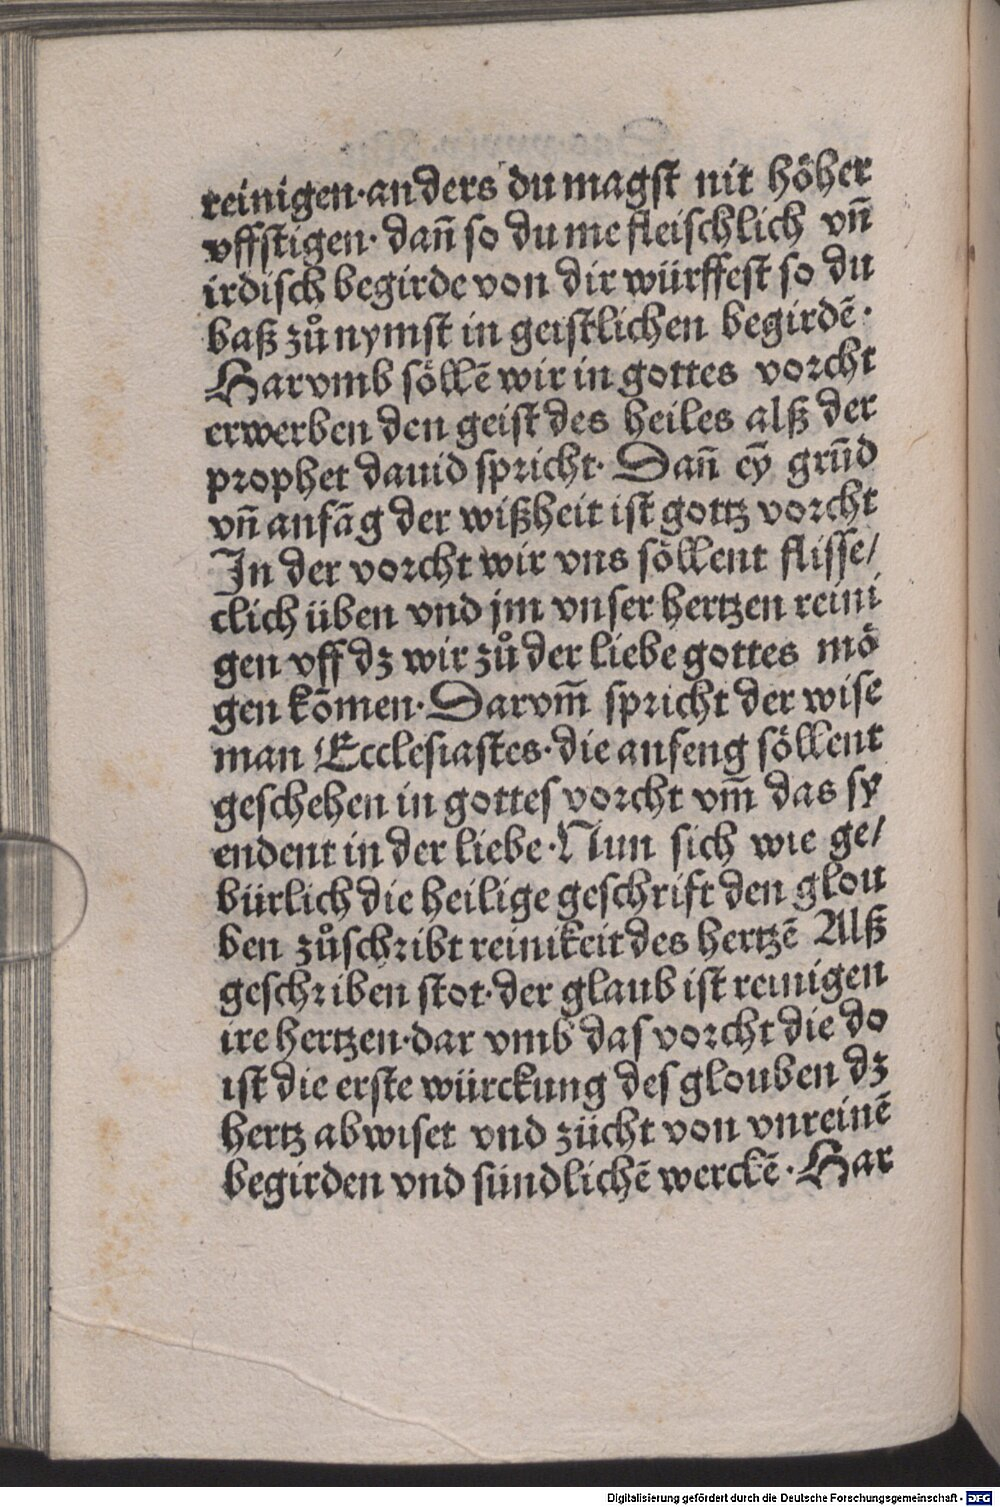 reinigen·anders du magst nit höher
vffstigen· dañ so du me fleischlich vñ
irdisch begirde von dir würffest so du
baß zů nymst in geistlichen begirdē·
Harvmb söllē wir in gottes vorcht
erwerben den geist des heiles alß der
prophet dauid spricht· Dañ eȳ grūd
vñ anfāg der wißheit ist gottz vorcht
In der vorcht wir vns söllent flisse/
clich üben vnd jm vnser hertzen reini
gen vff dz wir zů der liebe gottes mö
gen kōmen· Darvm̄ spricht der wise
man Ecclesiastes· die anfeng söllent
geschehen in gottes vorcht vm̄ das sy
endent in der liebe· Nun sich wie ge/
bürlich die heilige geschrift den glou
ben zůschribt reinikeit des hertzē Alß
geschriben stot· der glaub ist reinigen
ire hertzen·dar vmb das vorcht die do
ist die erste würckung des glouben dz
hertz abwiset vnd zücht von vnreinē
begirden vnd sündlichē werckē· Har
Digitalisierung gefördert durch die Deutsche Forschungsgemeinschaft - DFG